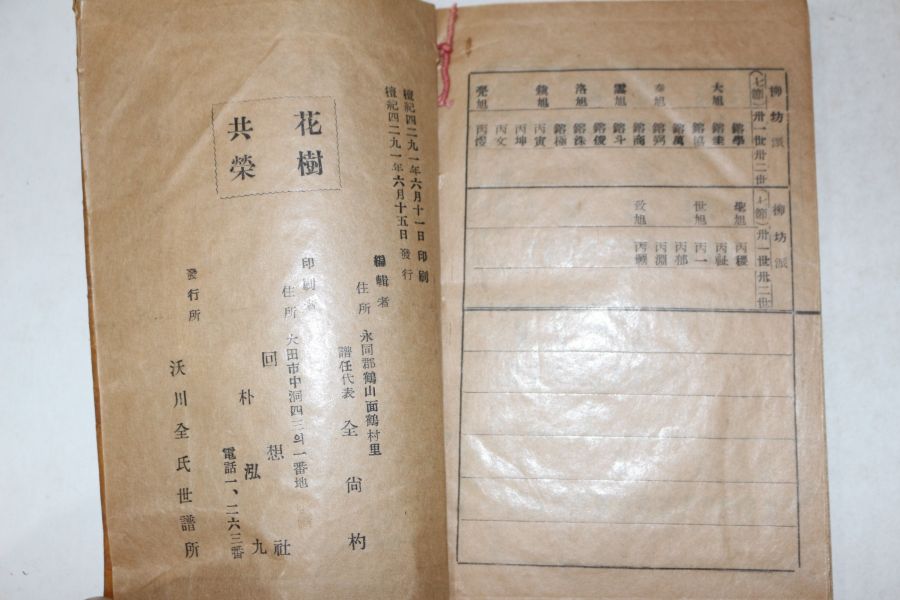 柳坊派
(七節)卅一世卅二世
大旭 鎔學
鎔圭
鎔協
鎔萬
泰旭 鎔弼
鎔商
雲旭 鎔斗
鎔俊
洛旭 鎔洙
鎔極
鎮旭 丙寅
丙坤
丙文
亮旭
柳坊派
(七節)卅一世卅二世
聖旭 丙稷
丙祉
世旭 丙一
丙郁
丙淵
致旭
檀祀四二九一年六月十一日 印刷
檀祀四二九一年六月十五日 發行
花樹
共榮
編輯者
住所 永同郡鶴山面鶴村里
譜任代表 全尙杓
印刷者
住所 大田市中洞四三의一番地
回想社
朴泓九
電話一、二六三番
發行所
沃川全氏世譜所